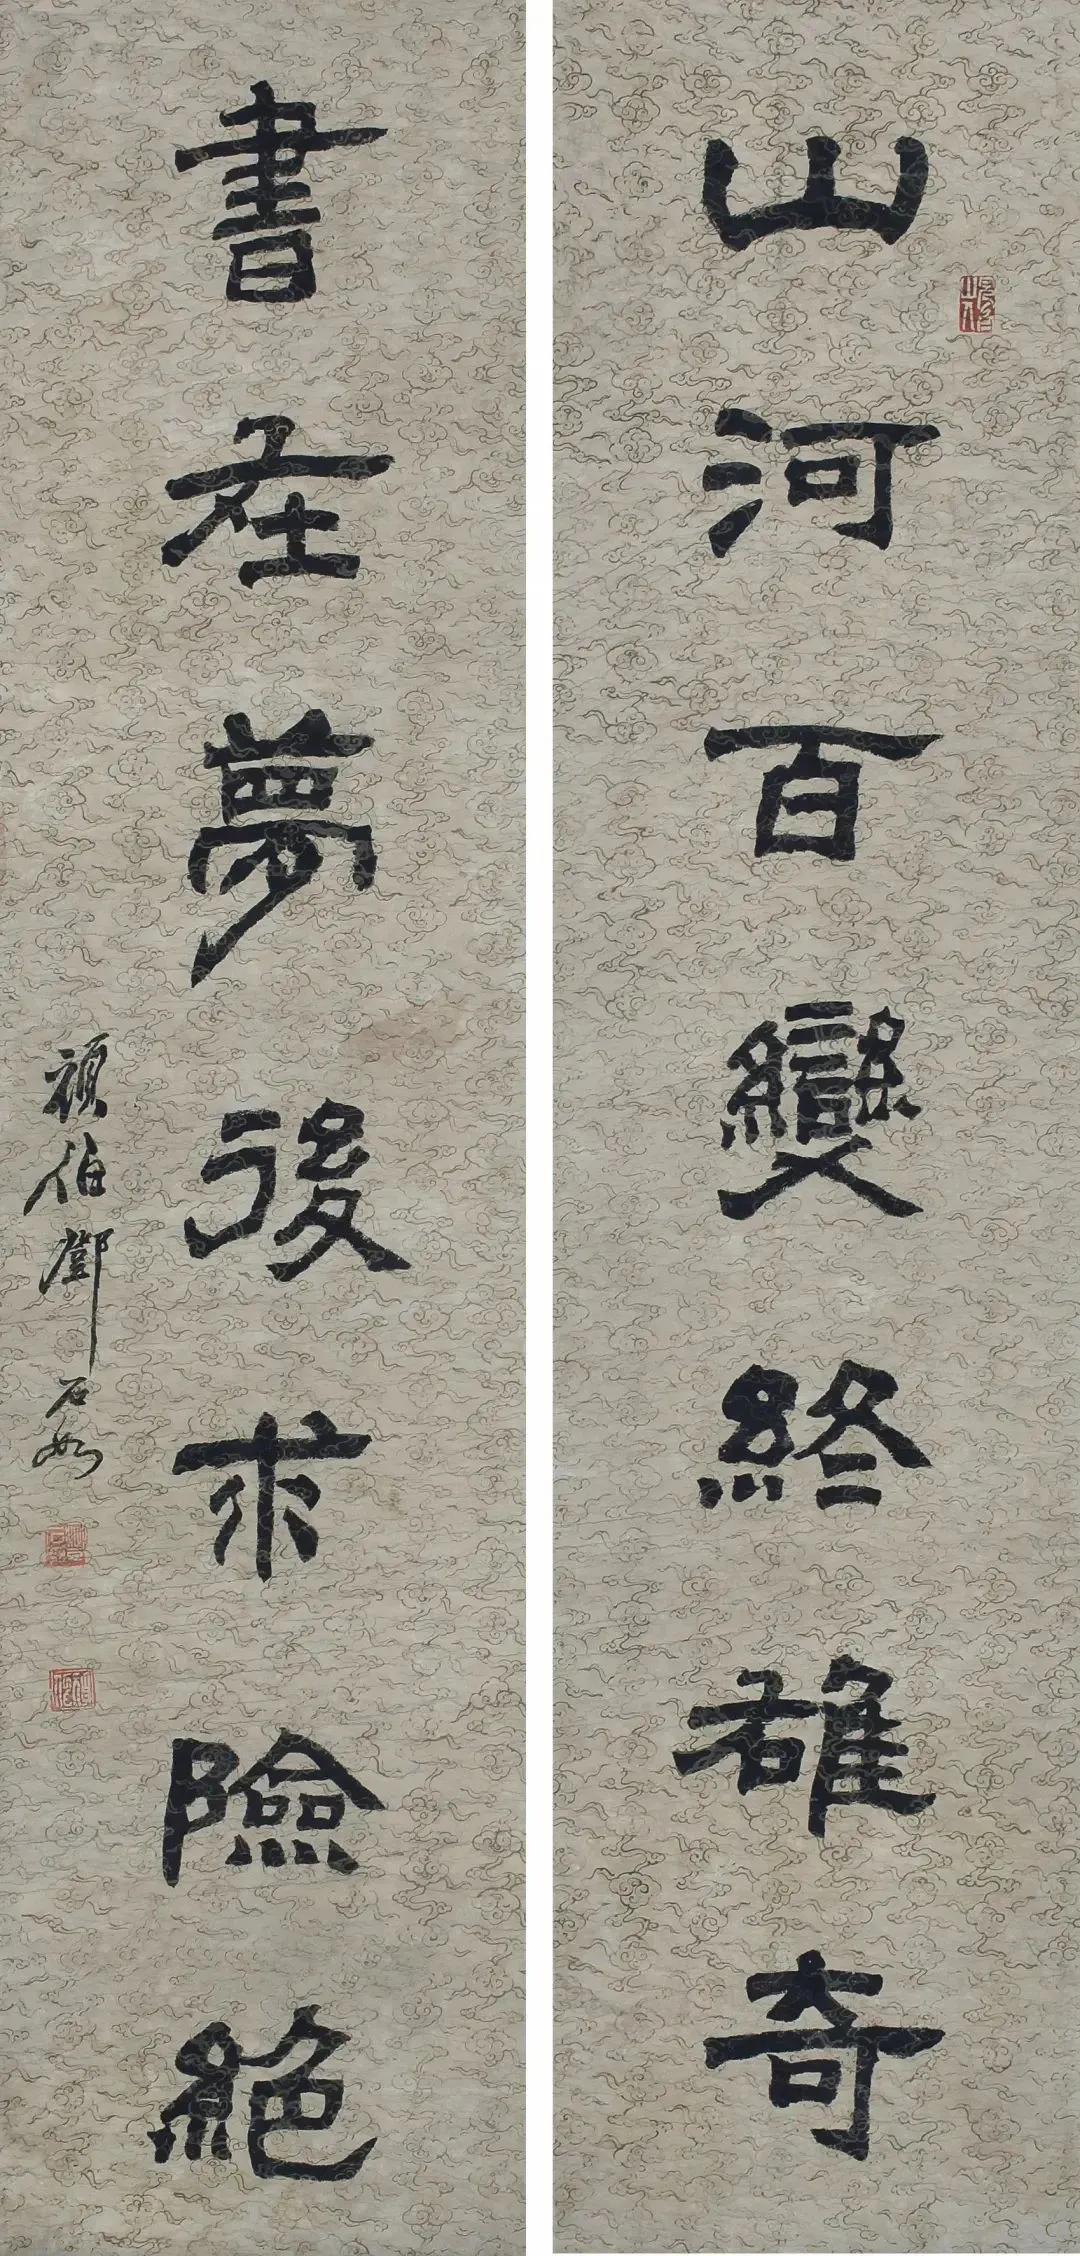 山河百變終雄奇
書在夢後求險絕
頑伯鄧石如